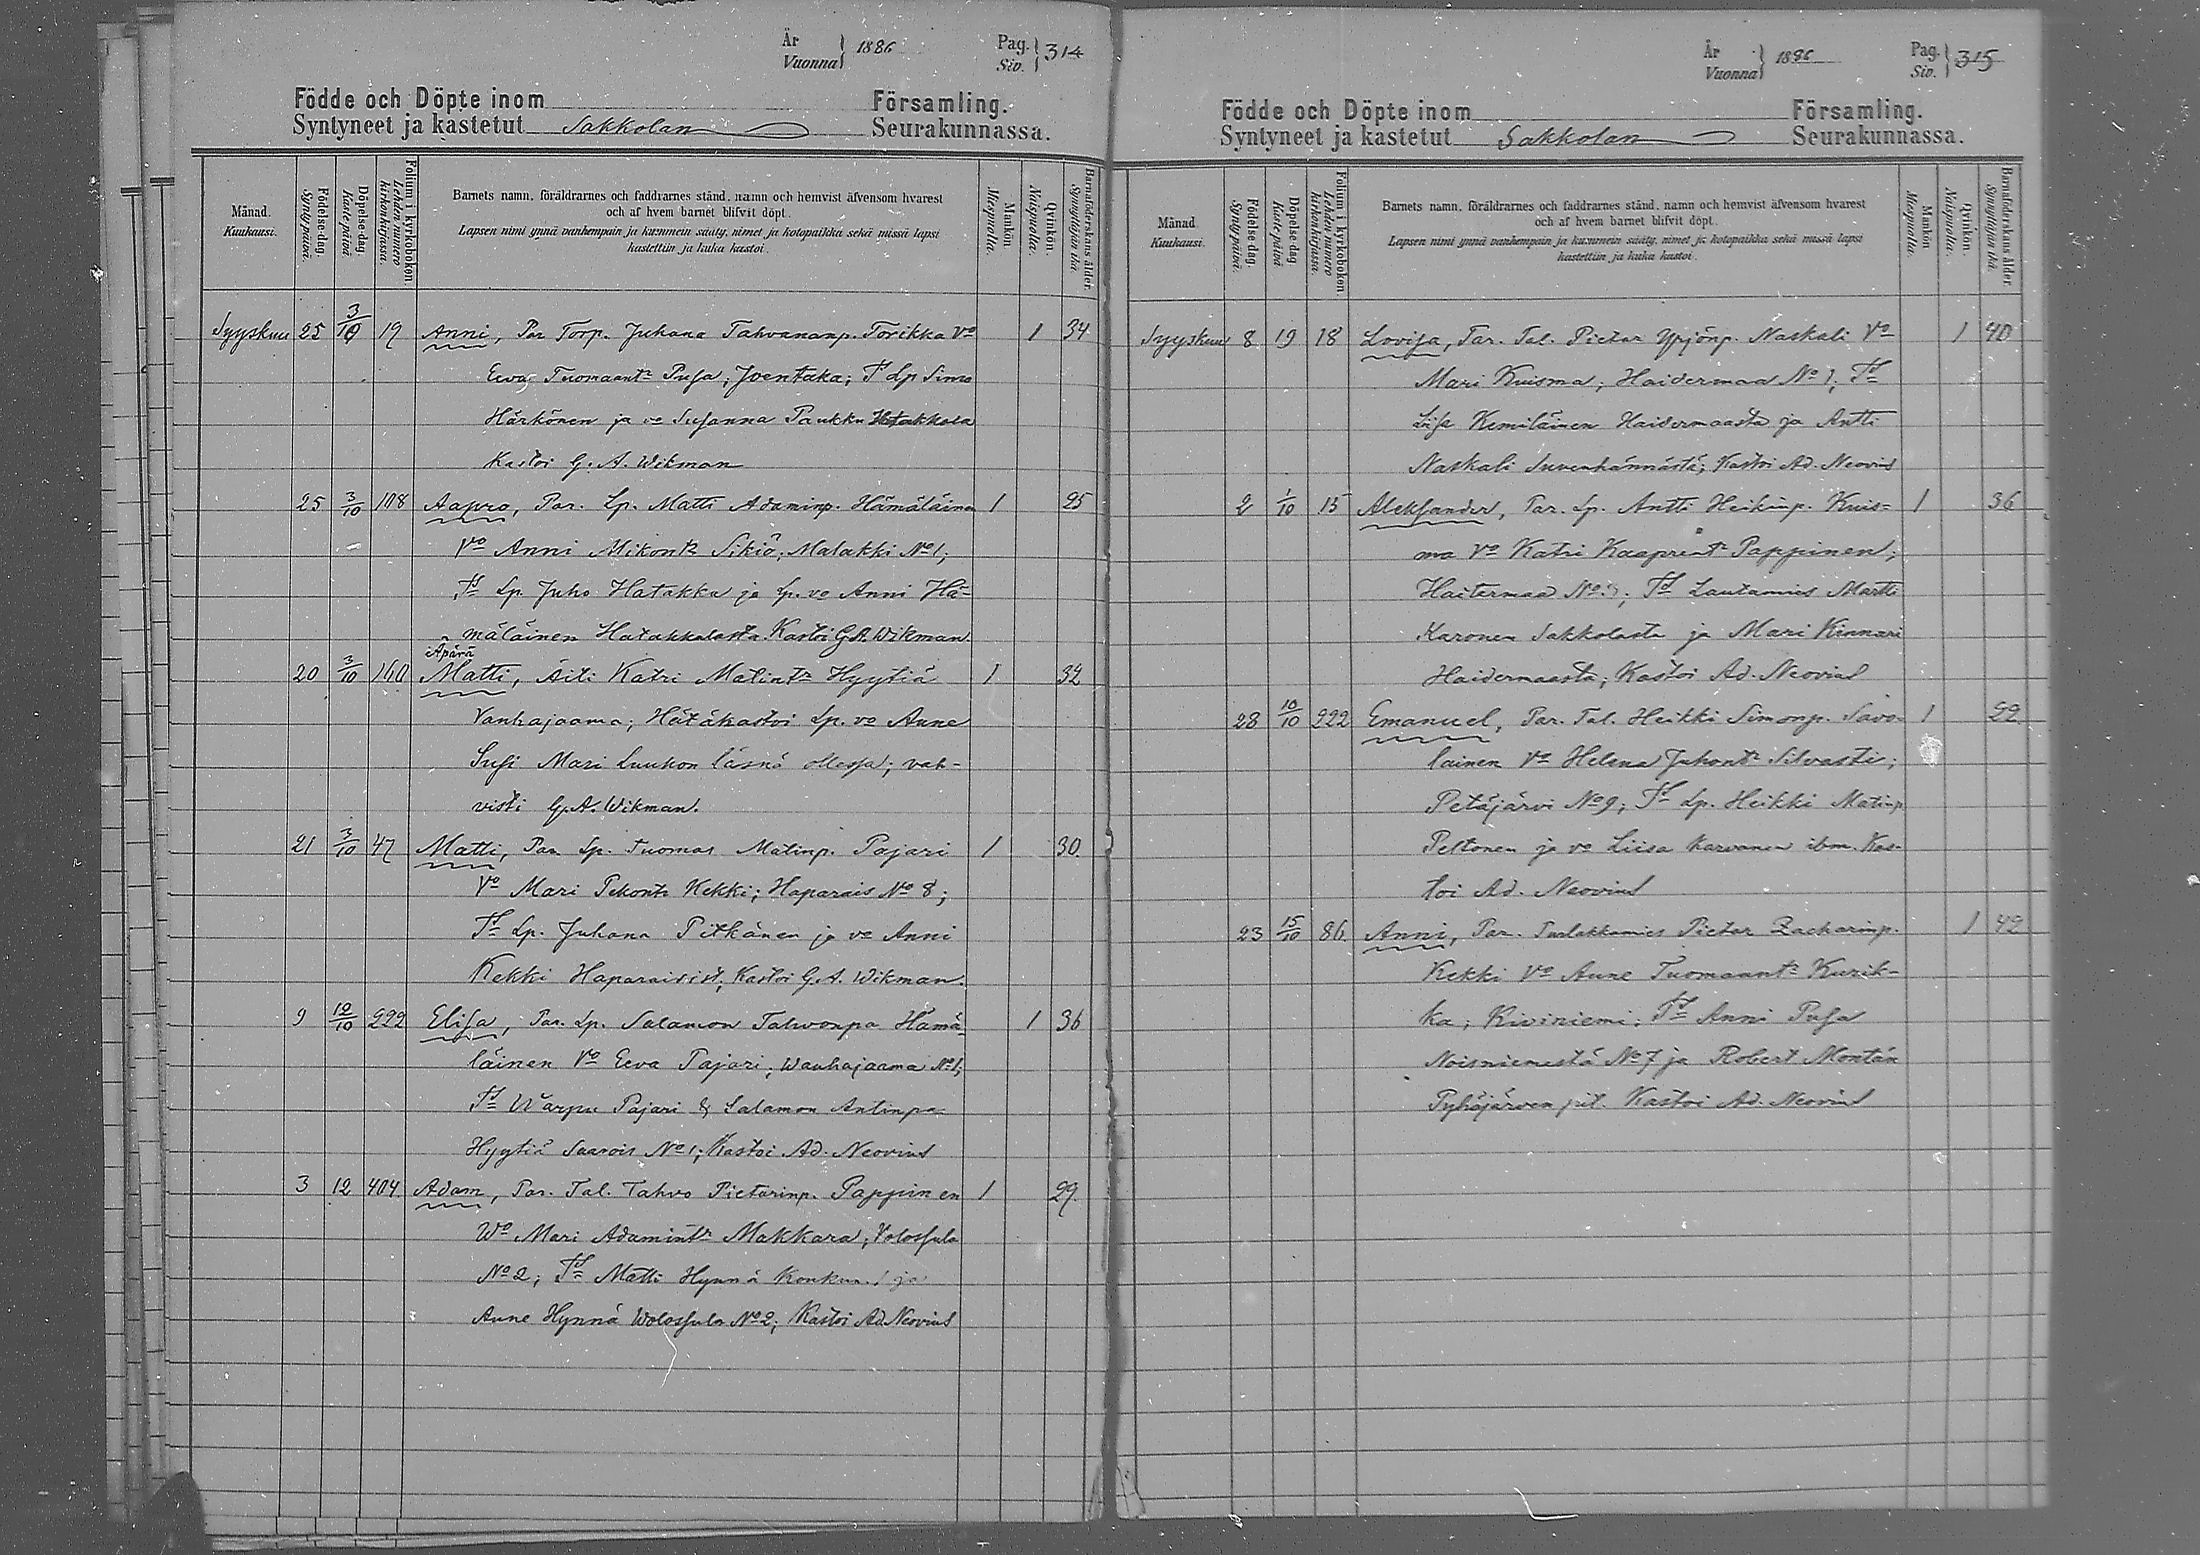 År
Vuonna } 1886 Pag.
Siv. } 314
Födde och Döpte inom Församling.
Syntyneet ja kastetut Sakkolan Seurakunnassa.
Månad.
Kuukausi.
Födelse-dag.
Syntypäivä.
Döpelse-dag.
Kastepäivä.
Folium i kyrkoboken.
Lehden numero kirkonkirjassa.
Barnets namn, föräldrarnes och faddrarnes stånd, namn och hemvist äfvensom hvarest
och af hvem barnet blifvit döpt.
Lapsen nimi ynnä vanhempain ja kummein sääty, nimet ja kotopaikka sekä missä lapsi
kastettiin ja kuka kastoi.
Mankön.
Miespuolia.
Qvinkön.
Naispuolia.
Barnaföderskans ålder.
Synnyttäjän ikä.
Syyskuu 25 3/10 19 Anni, Par Torp. Juhana Tahvananp. Torikka Vo 1 34
Eeva Tuomaantr Pusa; Joentaka; Td Lp Simo
Härkönen ja vo Susanna Paukku Hatakkola
Kastoi G. A. Wikman
25 3/10 108 Aapro, Par. Lp. Matti Adaminp. Hämäläinen 1 25
Vo Anni Mikontr Sikiö; Matakki No 1;
Td Lp. Juho Hatakka ja Lp. vo Anni Hä-
mäläinen Hatakkalasta. Kastoi G. A. Wikman.
Äpärä
20 3/10 160 Matti, Äiti Katri Matintr Hyytiä 1 32
Vanhajaama; Hätäkastoi Lp. vo Anne
Susi Mari Luukon läsnä ollessa; vah-
visti G. A. Wikman.
21 3/10 47 Matti, Par. Lp. Tuomas Matinp. Pajari 1 30.
Vo Mari Pekontr Kekki; Haparais No 8;
Td Lp. Juhana Pitkänen ja vo Anni
Kekki Haparaisist; Kastoi G. A. Wikman.
9 12/10 222 Elisa, Par. Lp. Salamon Tahvonpa Hämä- 1 36
läinen Vo Eeva Pajari, Wanhajaama No 1;
Td Warpu Pajari & Salamon Antinpa
Hyytiä Saarois No 1; Kastoi Ad. Neovius
3 12 404 Adam, Par. Tal. Tahvo Pietarinp. Pappinen 1 29.
Wo Mari Adamintr Makkara; Volossula
No 2; Td Matti Hynnä Konkun. 1 ja
Anne Hynnä Wolossula No 2; Kastoi Ad. Neovius
År
Vuonna } 1886 Pag.
Siv. } 315
Födde och Döpte inom Församling.
Syntyneet ja kastetut Sakkolan Seurakunnassa.
Månad
Kuukausi.
Födelse-dag.
Syntypäivä.
Döpelse-dag
Kastepäivä
Folium i kyrkoboken.
Lehden numero kirkonkirjassa.
Barnets namn, föräldrarnes och faddrarnes stånd, namn och hemvist äfvensom hvarest
och af hvem barnet blifvit döpt.
Lapsen nimi ynnä vanhempain ja kummein sääty, nimet ja kotopaikka sekä missä lapsi
kastettiin ja kuka kastoi.
Mankön
Miespuolia.
Qvinkön.
Naispuolia.
Barnaföderskans ålder.
Synnyttäjän ikä.
Syyskuu 8 19 18 Lovisa, Par. Tal. Pietar Yrjönp. Naskali Vo 1 40
Mari Kuisma; Haidermaa No 1; Td
Liisa Kemiläinen Haidermaasta ja Antti
Naskali Suvenhännästä; Kastoi Ad. Neovius
2 1/10 15 Aleksander, Par. Lp. Antti Heikinp. Kuis- 1 36
ma Vo Katri Kaaprintr Pappinen;
Haitermaa No 5; Td Lautamies Martti
Karonen Sakkolasta ja Mari Kinnari
Haidermaasta; Kastoi Ad. Neovius
28 10/10 222 Emanuel, Par. Tal. Heikki Simonp. Savo- 1 22
lainen Vo Helena Juhontr Silvasti;
Petäjärvi No 9; Td Lp. Heikki Matinp
Peltonen ja vo Liisa Karvanen ibm. Kas-
toi Ad. Neovius
23 15/10 86. Anni, Par. Pietar Zacharinp. 1 42
Kekki Vo Aune Tuomaantr Kurik-
ka; Riviniemi; Td Anni Pusa
Noisniemestä No 7 ja Robert Montán
Pyhäjärven pit. Kastoi Ad. Neovius